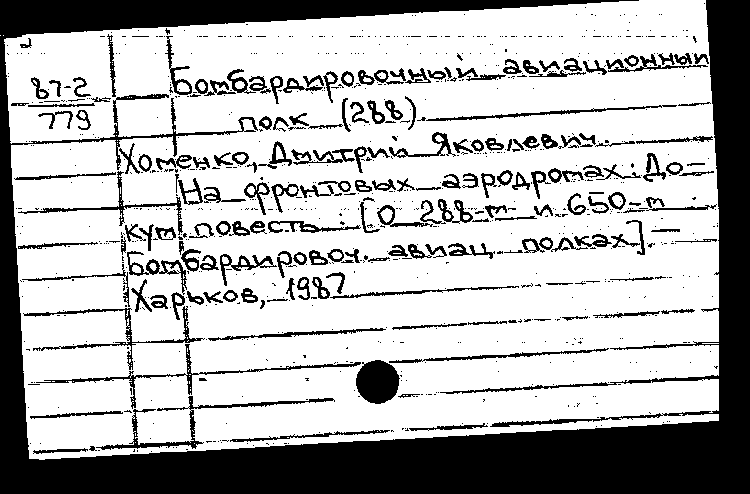 87-2
779
Бомбардировочный авиационный
полк (288).
Хоменко, Дмитрий Яковлевич.
На фронтовых аэродромах: До-
кум. повесть: [О 288-м и 650-м
Бомбардировоч. авиац. полках]. —
Харьков, 1987